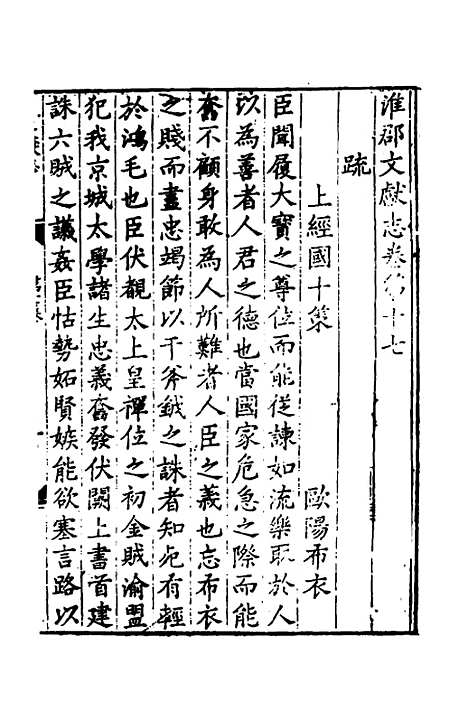 淮郡文獻志卷第十七
疏
上經國十策 歐陽布衣
臣聞履大寶之尊位而能從諫如流樂取於人
以為善者人君之德也當國家危急之際而能
奮不顧身敢為人所難者人臣之義也忘布衣
之賤而盡忠竭節以干斧鉞之誅者知死有輕
於鴻毛也臣伏覩太上皇禪位之初金賊渝盟
犯我京城太學諸生忠義奮發伏闕上書首建
誅六賊之議姦臣怙勢妬賢嫉能欲塞言路以